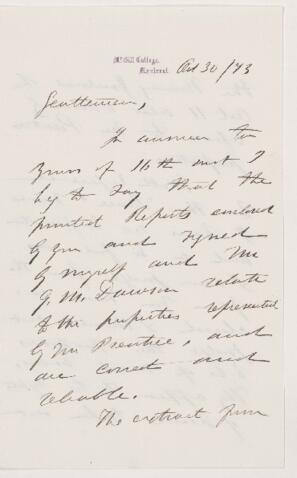 McGill College,
Montreal.
Oct 30/73
Gentlemen,
In answer to
yours of 16th inst I
beg to say that the
printed Reports enclosed
by you and signed
by myself and Mr
G. M. Dawson relate
to the properties represented
by Mr Prentice, and
are correct and
reliable.
The extract from